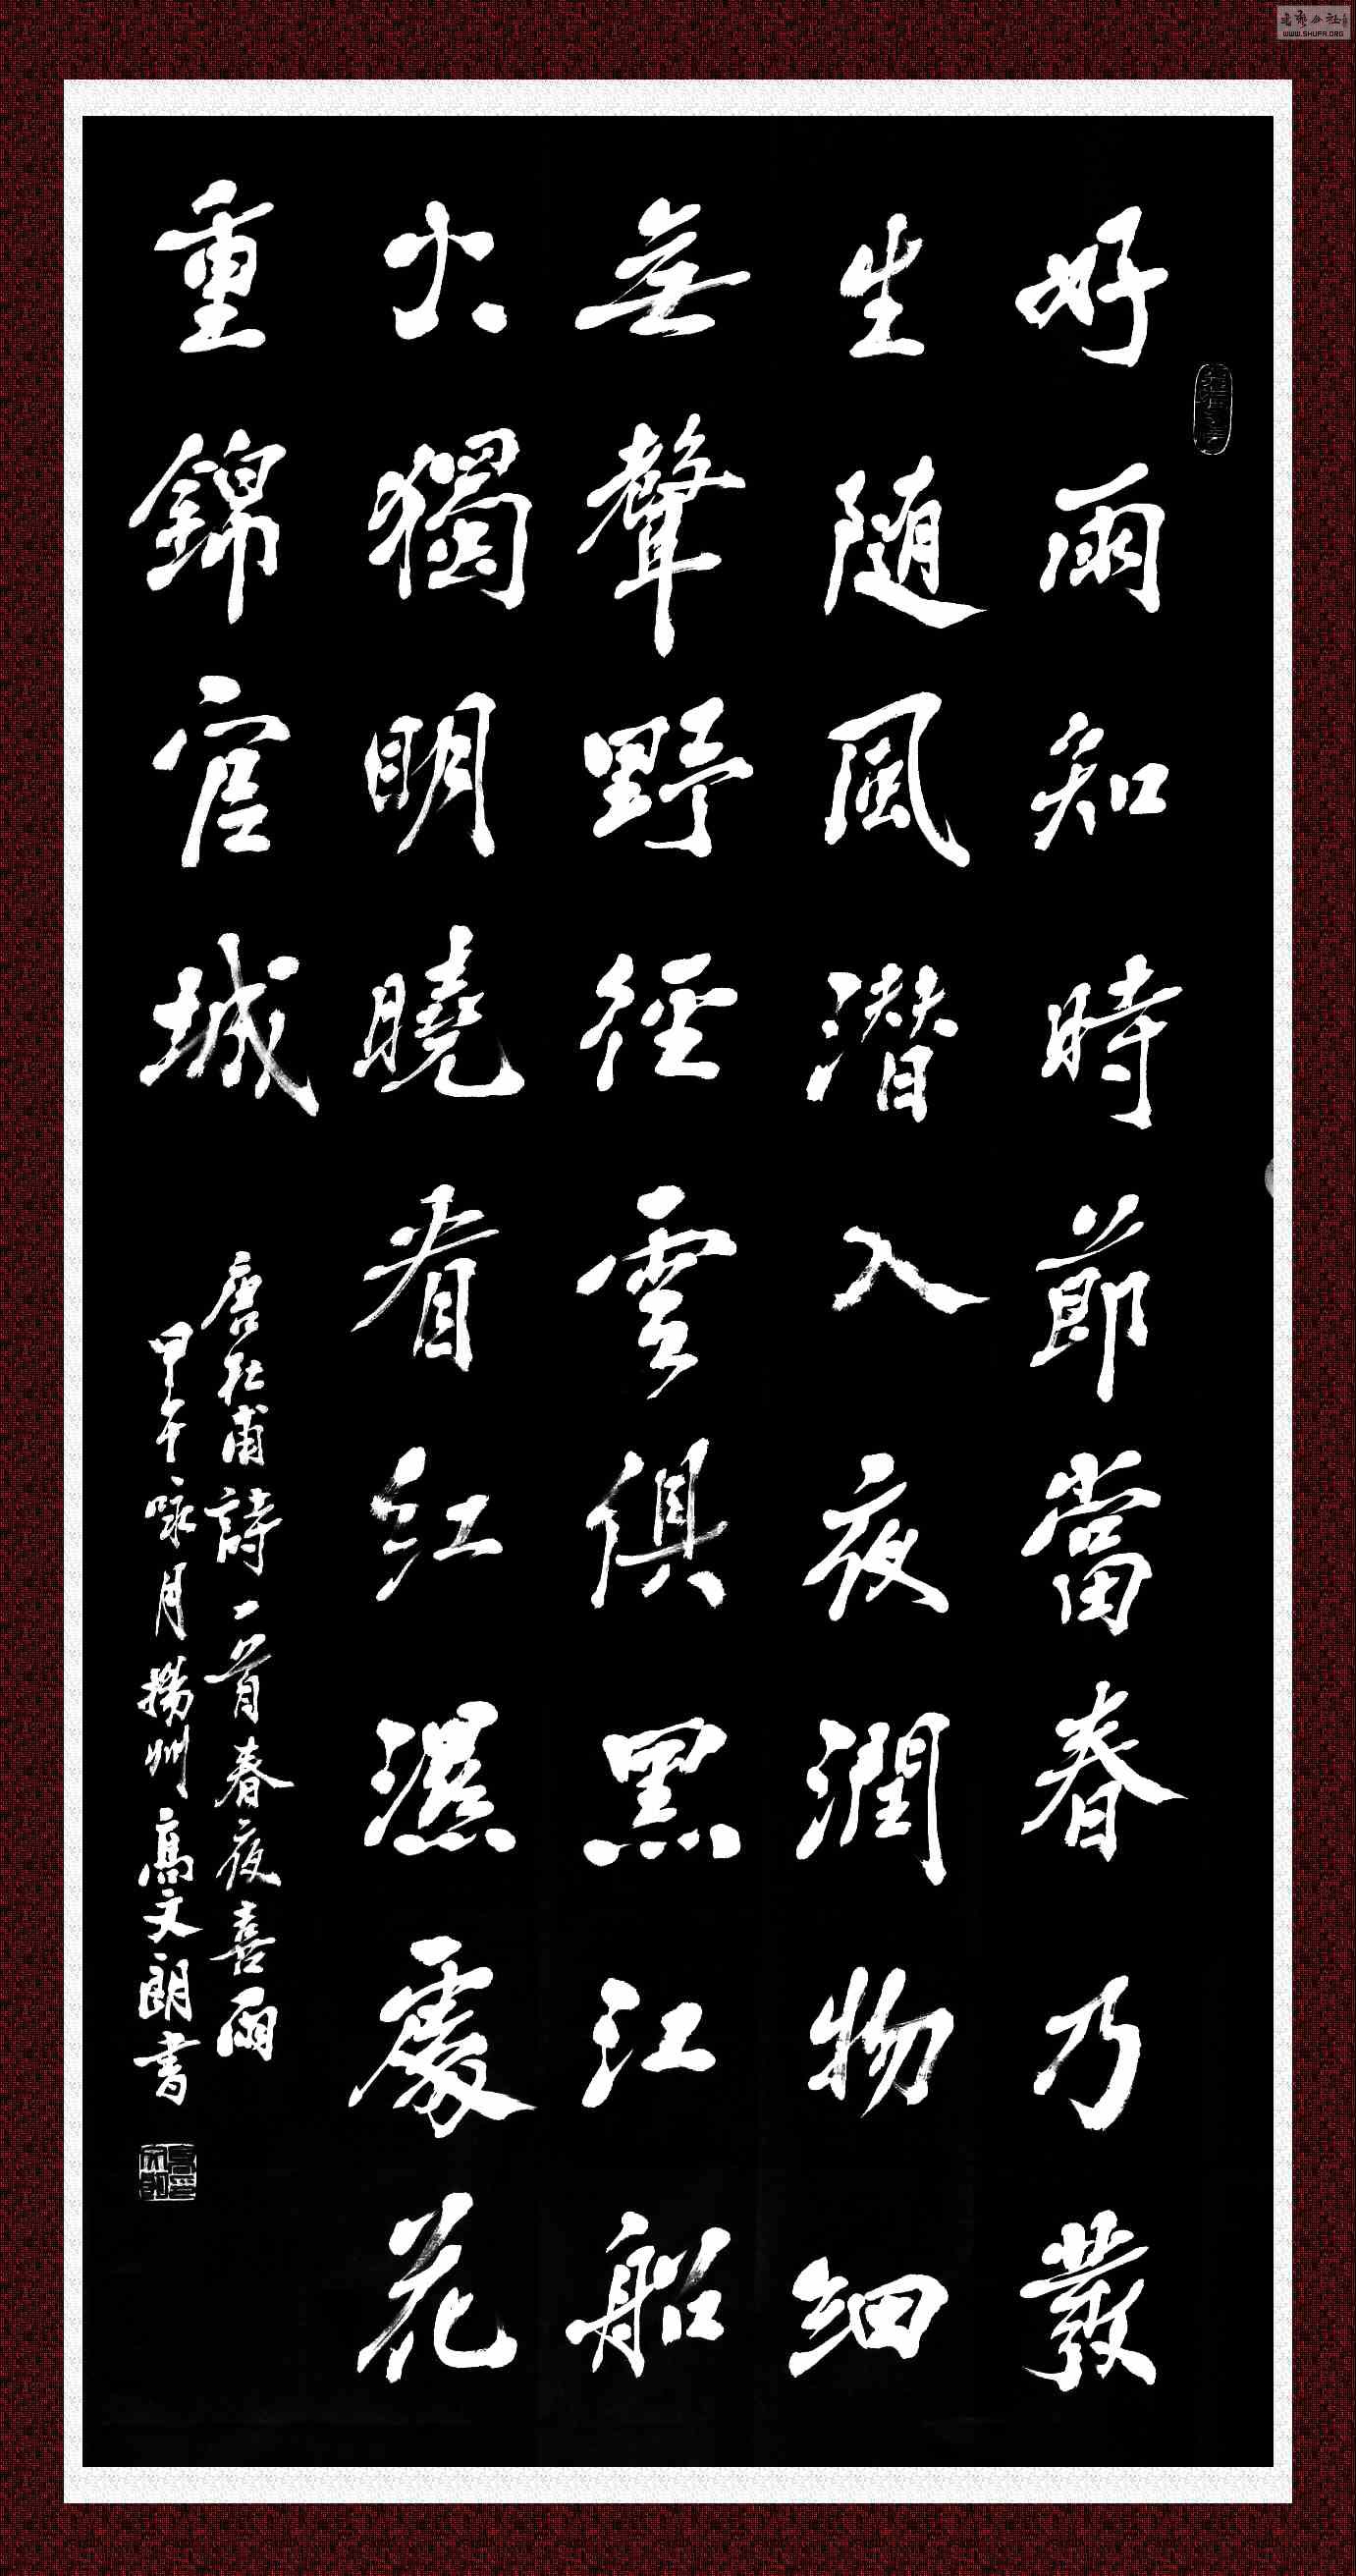 好雨知時節當春乃發
生随風潛入夜潤物細
無聲野徑雲俱黑江船
火獨明曉看紅濕處花
重錦官城
唐杜甫詩一首春夜喜雨
甲午咏月揚州高文朗書
WWW.SHUFA.ORG